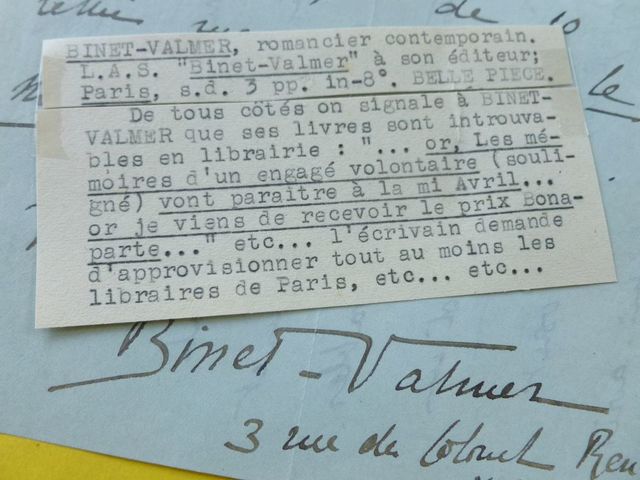 de 10
BINET-VALMER, romancier contemporain.
L.A.S. "Binet-Valmer" à son éditeur;
Paris, s.d. 3 pp. in-8°. BELLE PIECE.
De tous côtés on signale à BINET-
VALMER que ses livres sont introuva-
bles en librairie : "... or, Les mé-
moires d'un engagé volontaire (souli-
gné) vont paraître à la mi Avril...
or je viens de recevoir le prix Bona-
parte..." etc... l'écrivain demande
d'approvisionner tout au moins les
libraires de Paris, etc... etc...
le
Binet-Valmer
3 rue du Colonel Ren